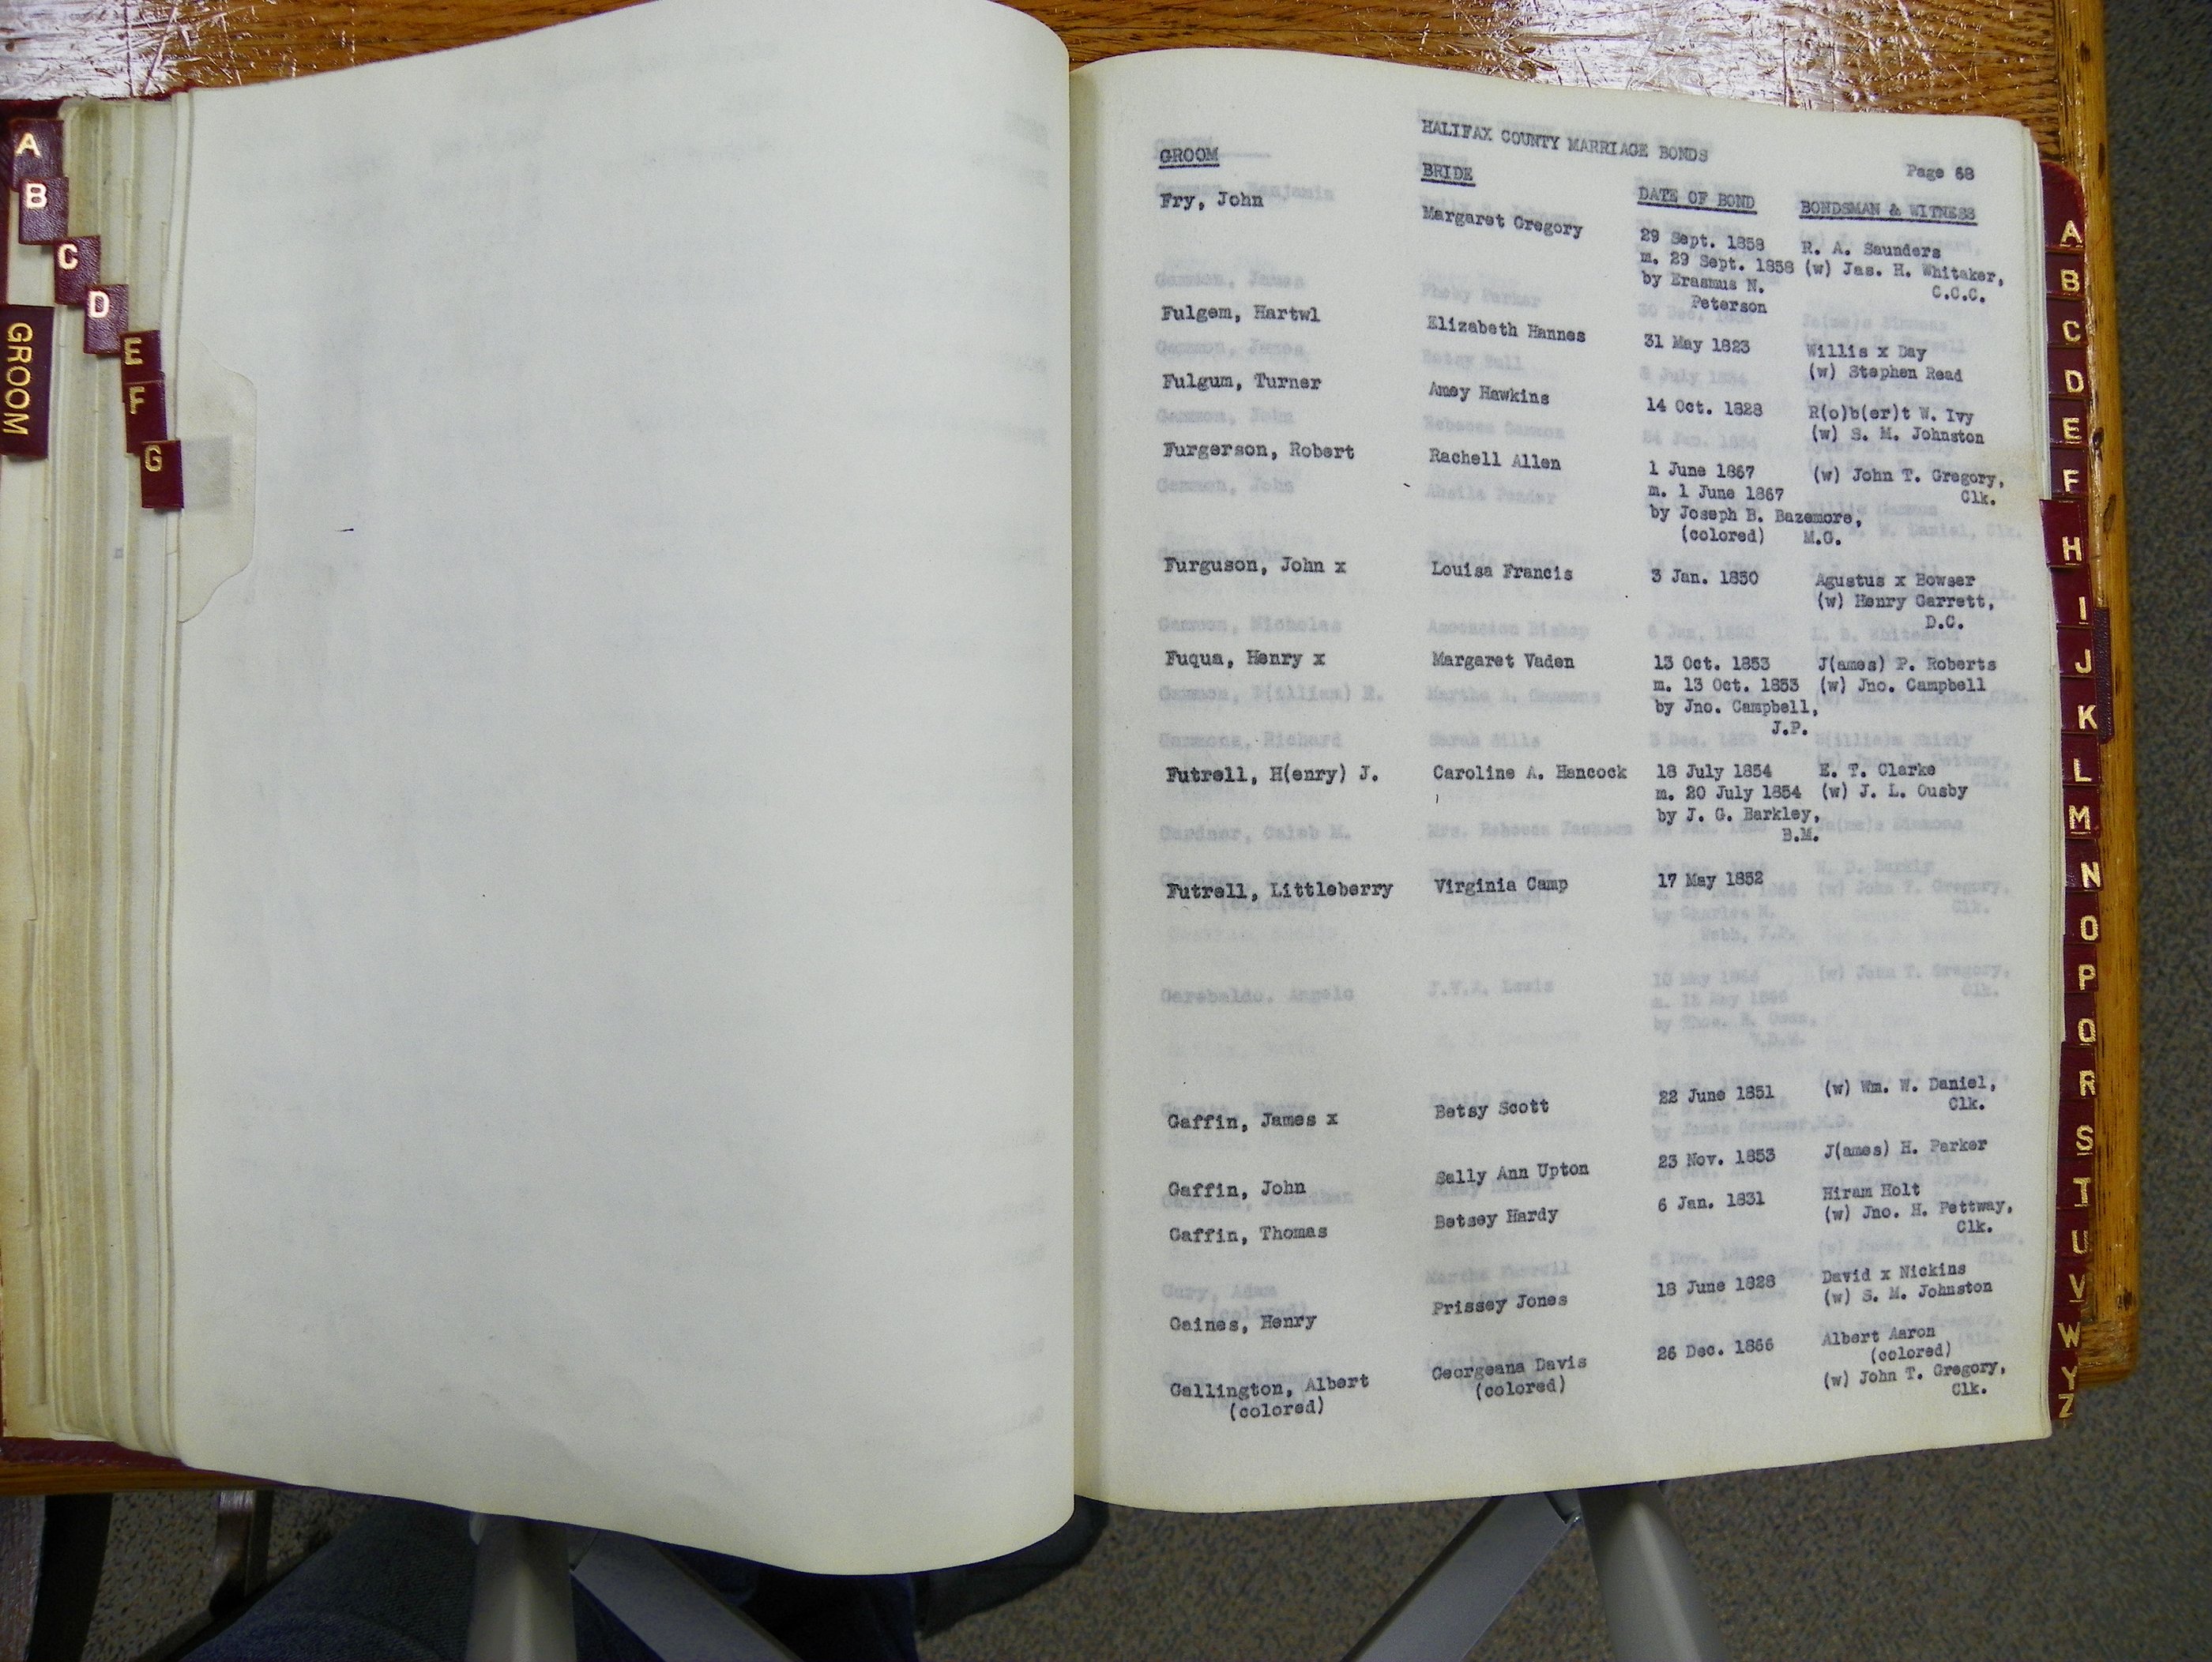 A
B
C
D
E
F
G
GROOM
HALIFAX COUNTY MARRIAGE BONDS
Page 68
GROOM BRIDE DATE OF BOND BONDSMAN & WITNESS
Fry, John Margaret Gregory 29 Sept. 1858 R. A. Saunders
m. 29 Sept. 1858 (w) Jas. H. Whitaker,
by Erasmus N. C.C.C.
Peterson
Fulgem, Hartwl Elizabeth Hannes 31 May 1823 Willis x Day
(w) Stephen Read
Fulgum, Turner Amey Hawkins 14 Oct. 1828 R(o)b(er)t W. Ivy
(w) S. M. Johnston
Furgerson, Robert Rachell Allen 1 June 1867 (w) John T. Gregory,
m. 1 June 1867 Clk.
by Joseph B. Bazemore,
(colored) M.G.
Furguson, John x Louisa Francis 3 Jan. 1850 Agustus x Bowser
(w) Henry Garrett,
D.C.
Fuqua, Henry x Margaret Vaden 13 Oct. 1853 J(ames) P. Roberts
m. 13 Oct. 1853 (w) Jno. Campbell
by Jno. Campbell,
J.P.
Futrell, H(enry) J. Caroline A. Hancock 18 July 1854 E. T. Clarke
m. 20 July 1854 (w) J. L. Ousby
by J. G. Barkley,
B.M.
Futrell, Littleberry Virginia Camp 17 May 1852
Gaffin, James x Betsy Scott 22 June 1851 (w) Wm. W. Daniel,
Clk.
Gaffin, John Sally Ann Upton 23 Nov. 1853 J(ames) H. Parker
Gaffin, Thomas Betsey Hardy 6 Jan. 1831 Hiram Holt
(w) Jno. H. Pettway,
Clk.
Gaines, Henry Prissey Jones 18 June 1828 David x Nickins
(w) S. M. Johnston
Gallington, Albert Georgeana Davis 26 Dec. 1866 Albert Aaron
(colored) (colored) (colored)
(w) John T. Gregory,
Clk.
A
B
C
D
E
F
H
I
J
K
L
M
N
O
P
Q
R
S
T
U
V
W
Y
Z